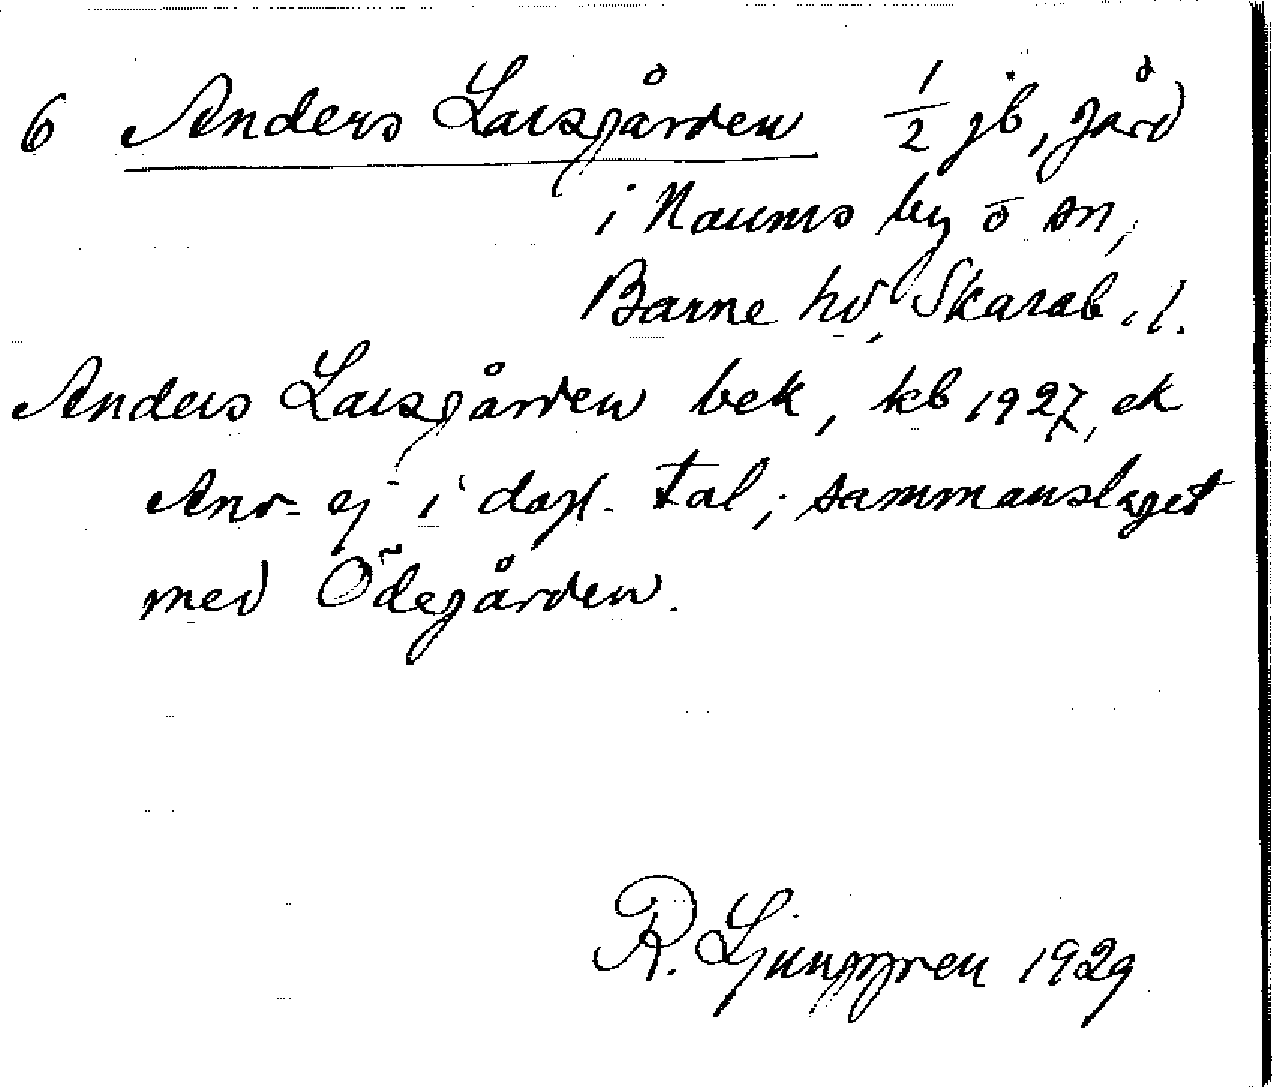 6 Anders Larsgården 1/2 jb, gård
i Naums by o sn,
Barne hd, Skarab. l.
Anders Larsgården bek, kb 1927, ek
Anv. ej i dagl. tal; sammanslaget
med Ödegården.
R. Ljunggren 1929